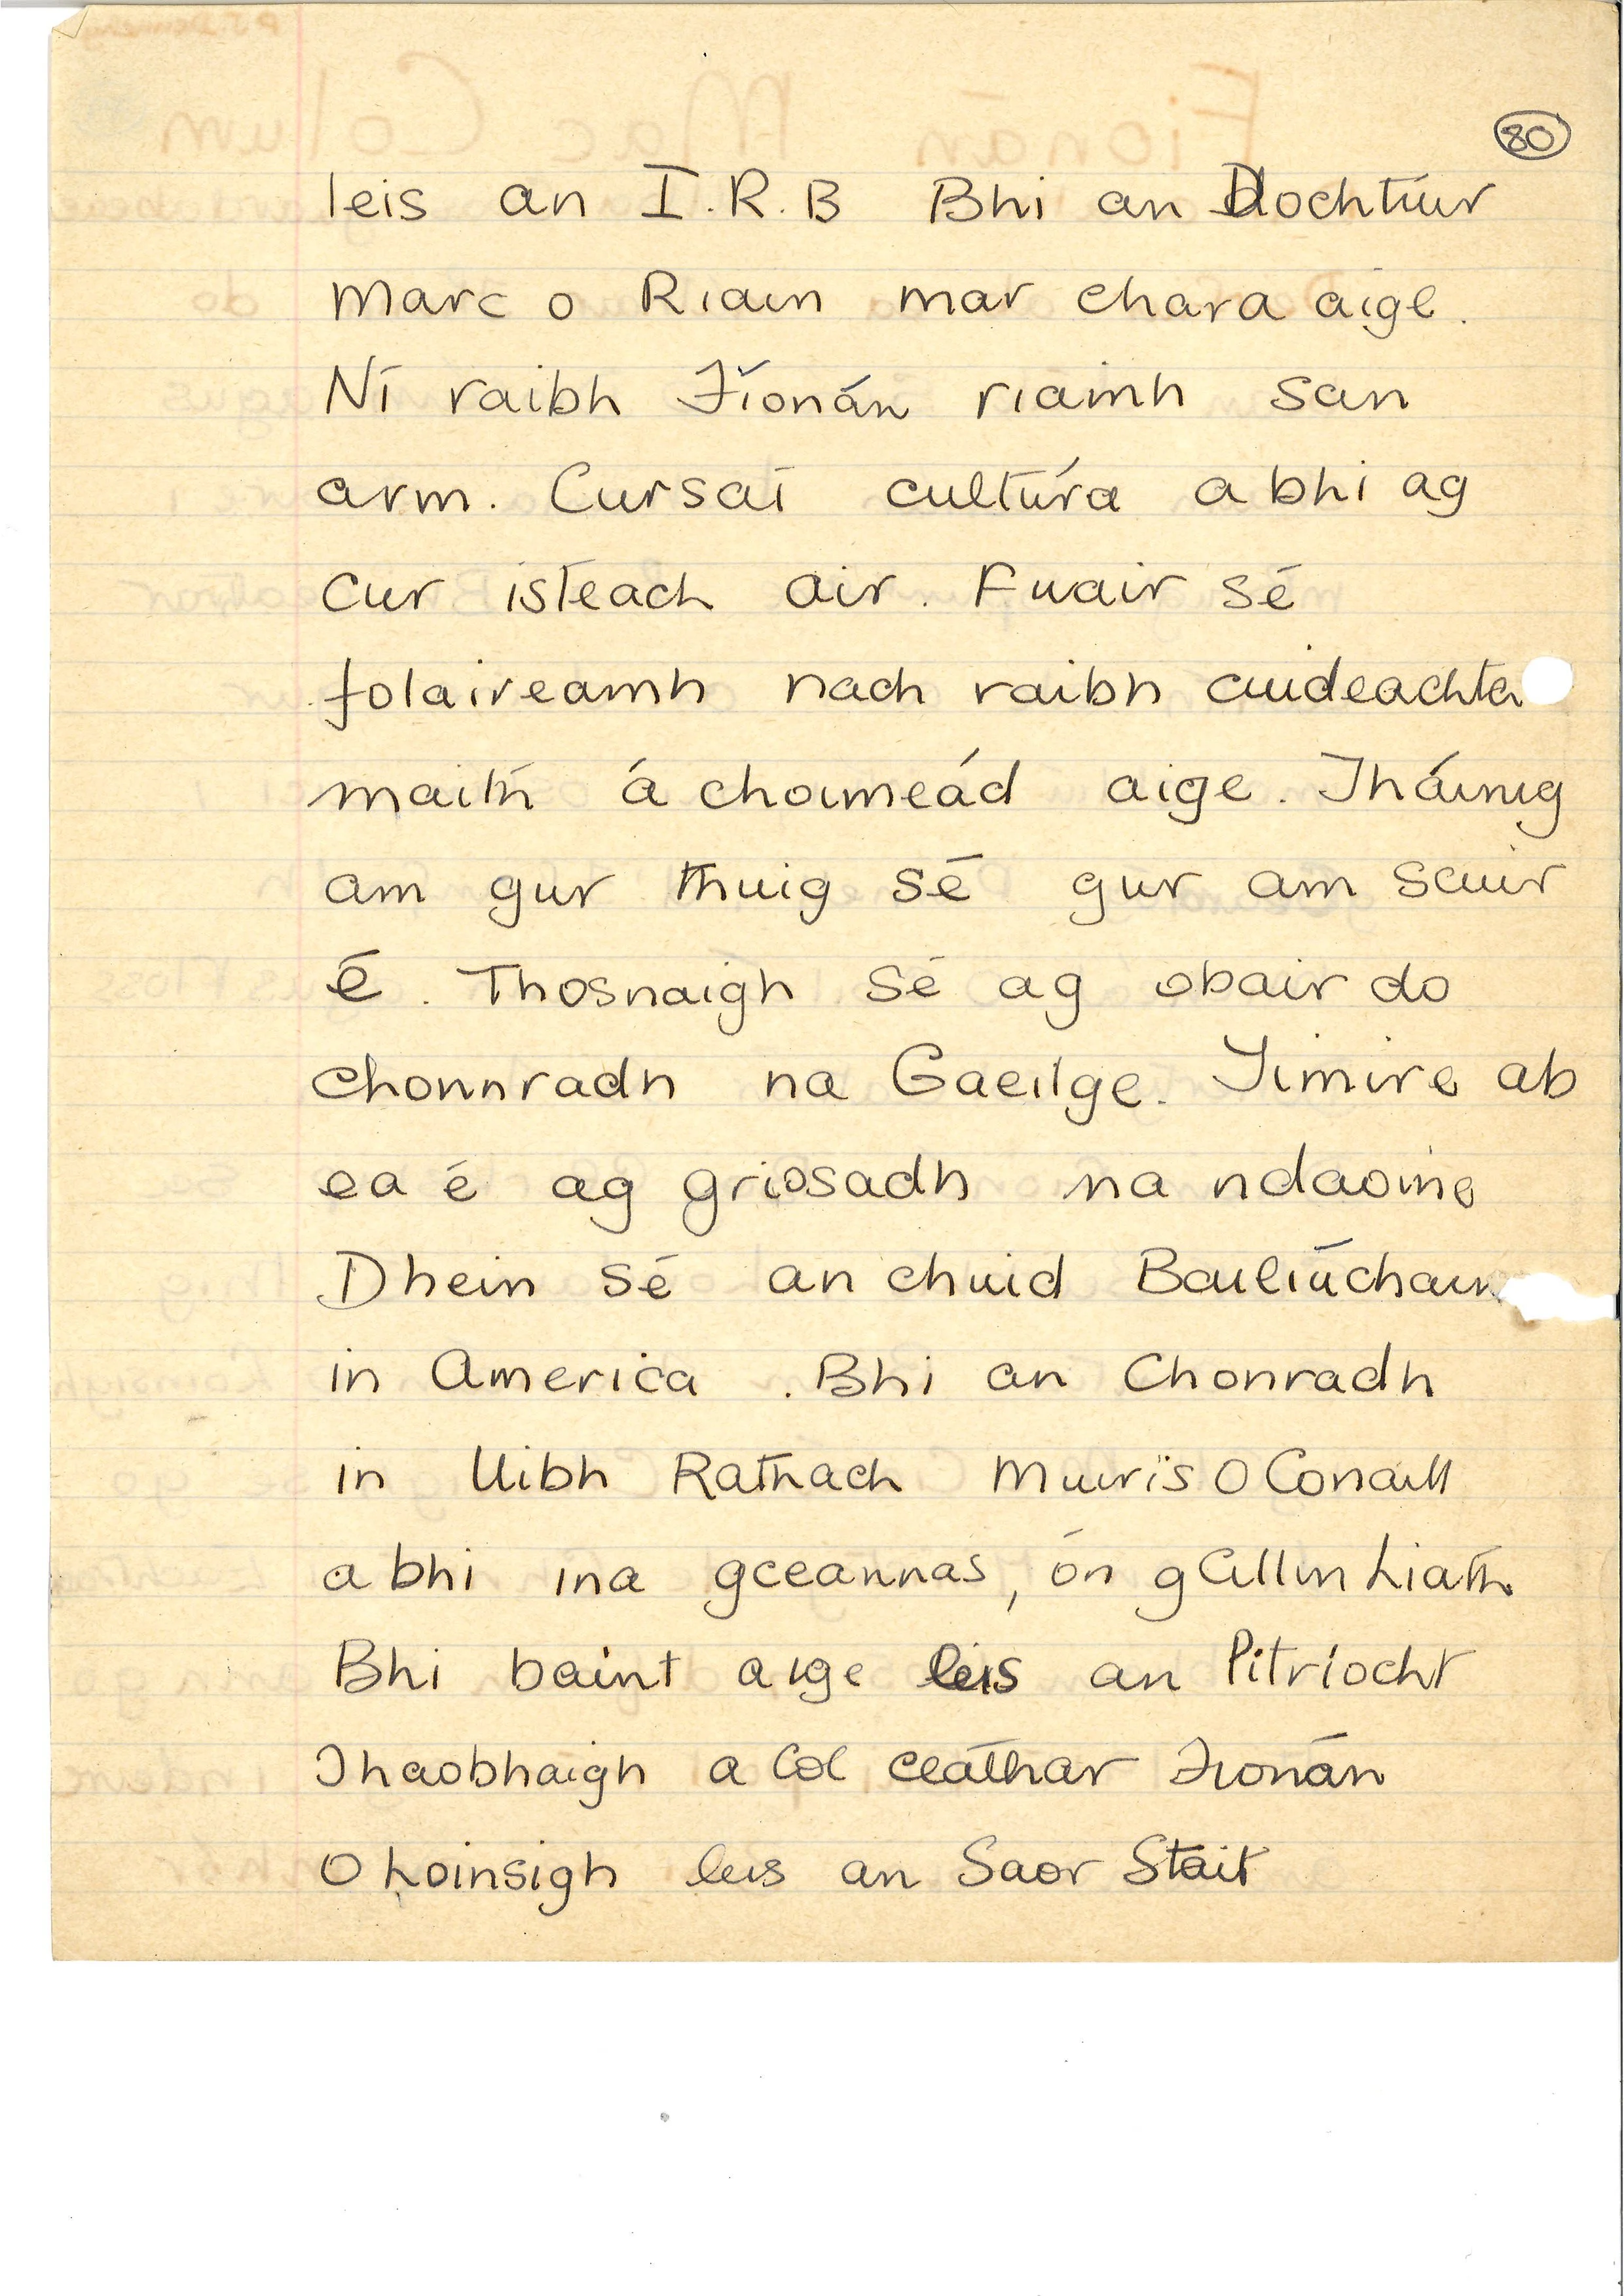 80
leis an I.R.B Bhi an Dochtúir
Marc o Riain mar chara aige.
Ní raibh Fíonán riamh san
arm. Cursaí cultúra a bhi ag
cur isteach air. Fuair sé
folaireamh nach raibh cuideachta
maith á choimeád aige. Tháinig
am gur thuig sé gur am scuir
é. Thosnaigh sé ag obair do
chonnradh na Gaeilge. Timire ab
ea é ag griosadh na ndaoine
Dhein sé an chuid Bailiúchain
in America. Bhi an Chonradh
in Uibh Rathach Muirís O Conaill
a bhi ina gceannas, ón gCillin Liath.
Bhi baint aige leis an Pitríocht
Thaobhaigh a Col ceáthar Fionán
O Loinsigh leis an Saor Stait